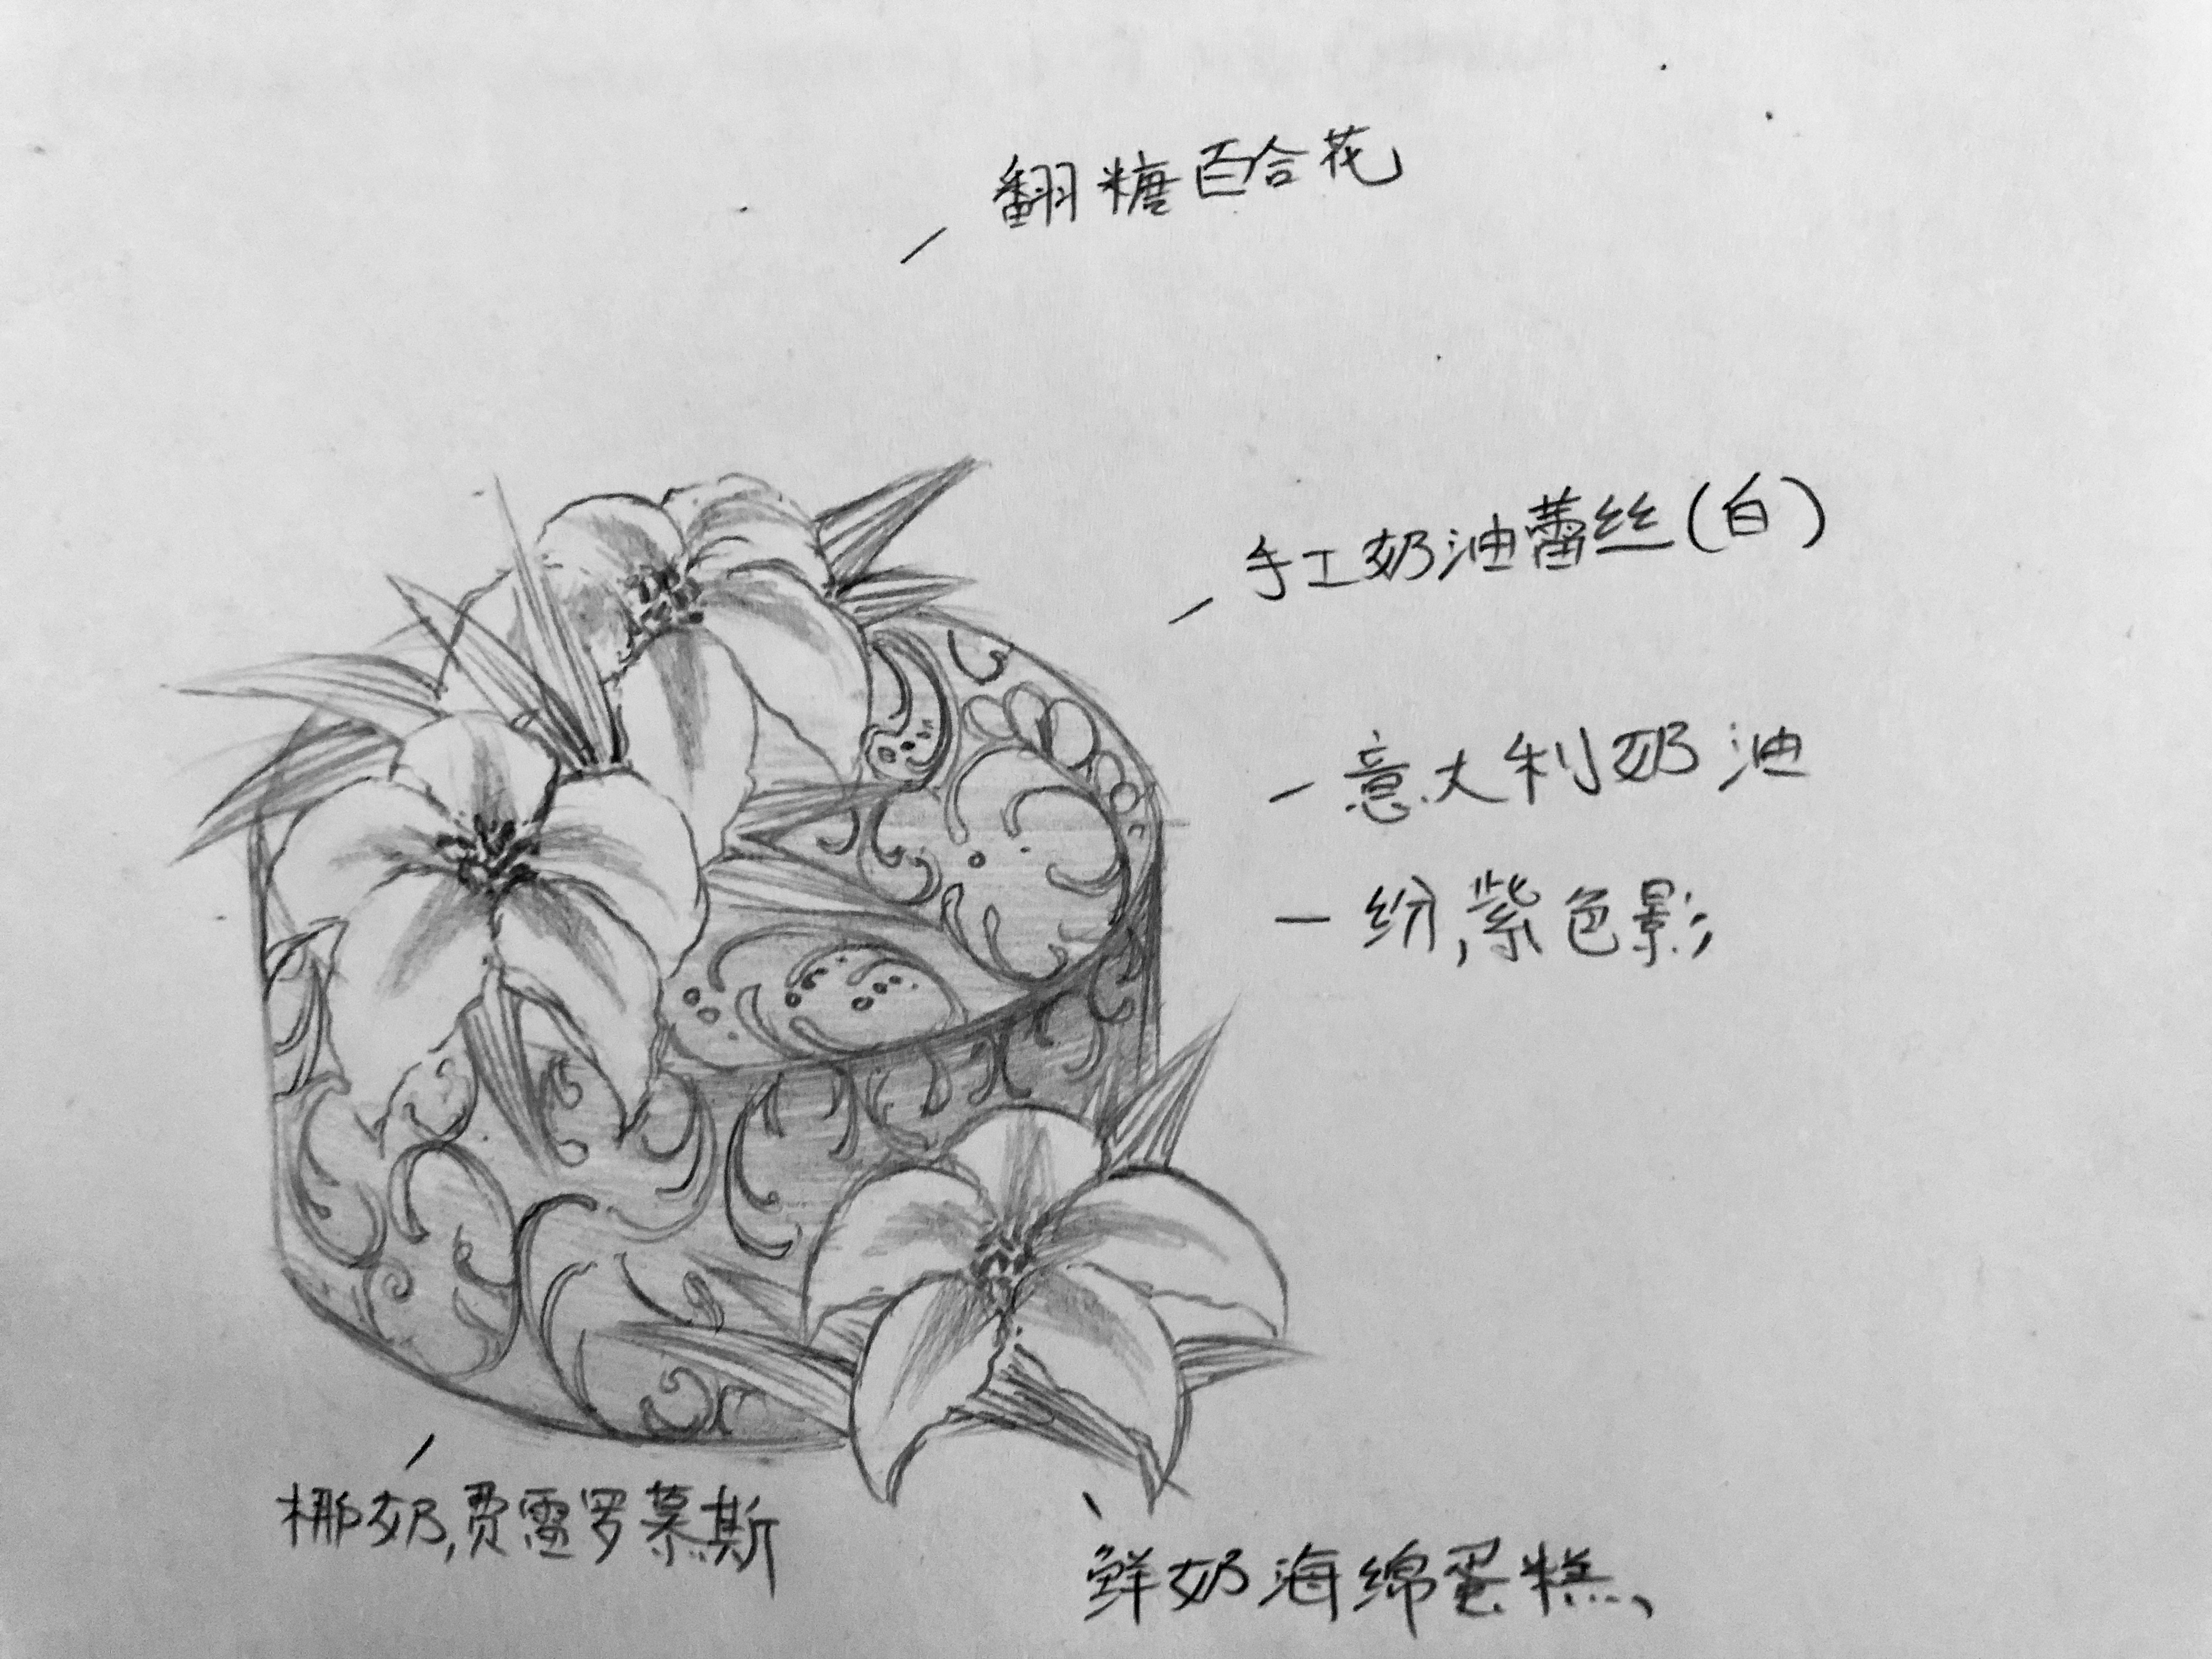 翻糖百合花
手工奶油蕾丝(白)
意大利奶油
纷,紫色影
椰奶,费雷罗慕斯
鲜奶海绵蛋糕、